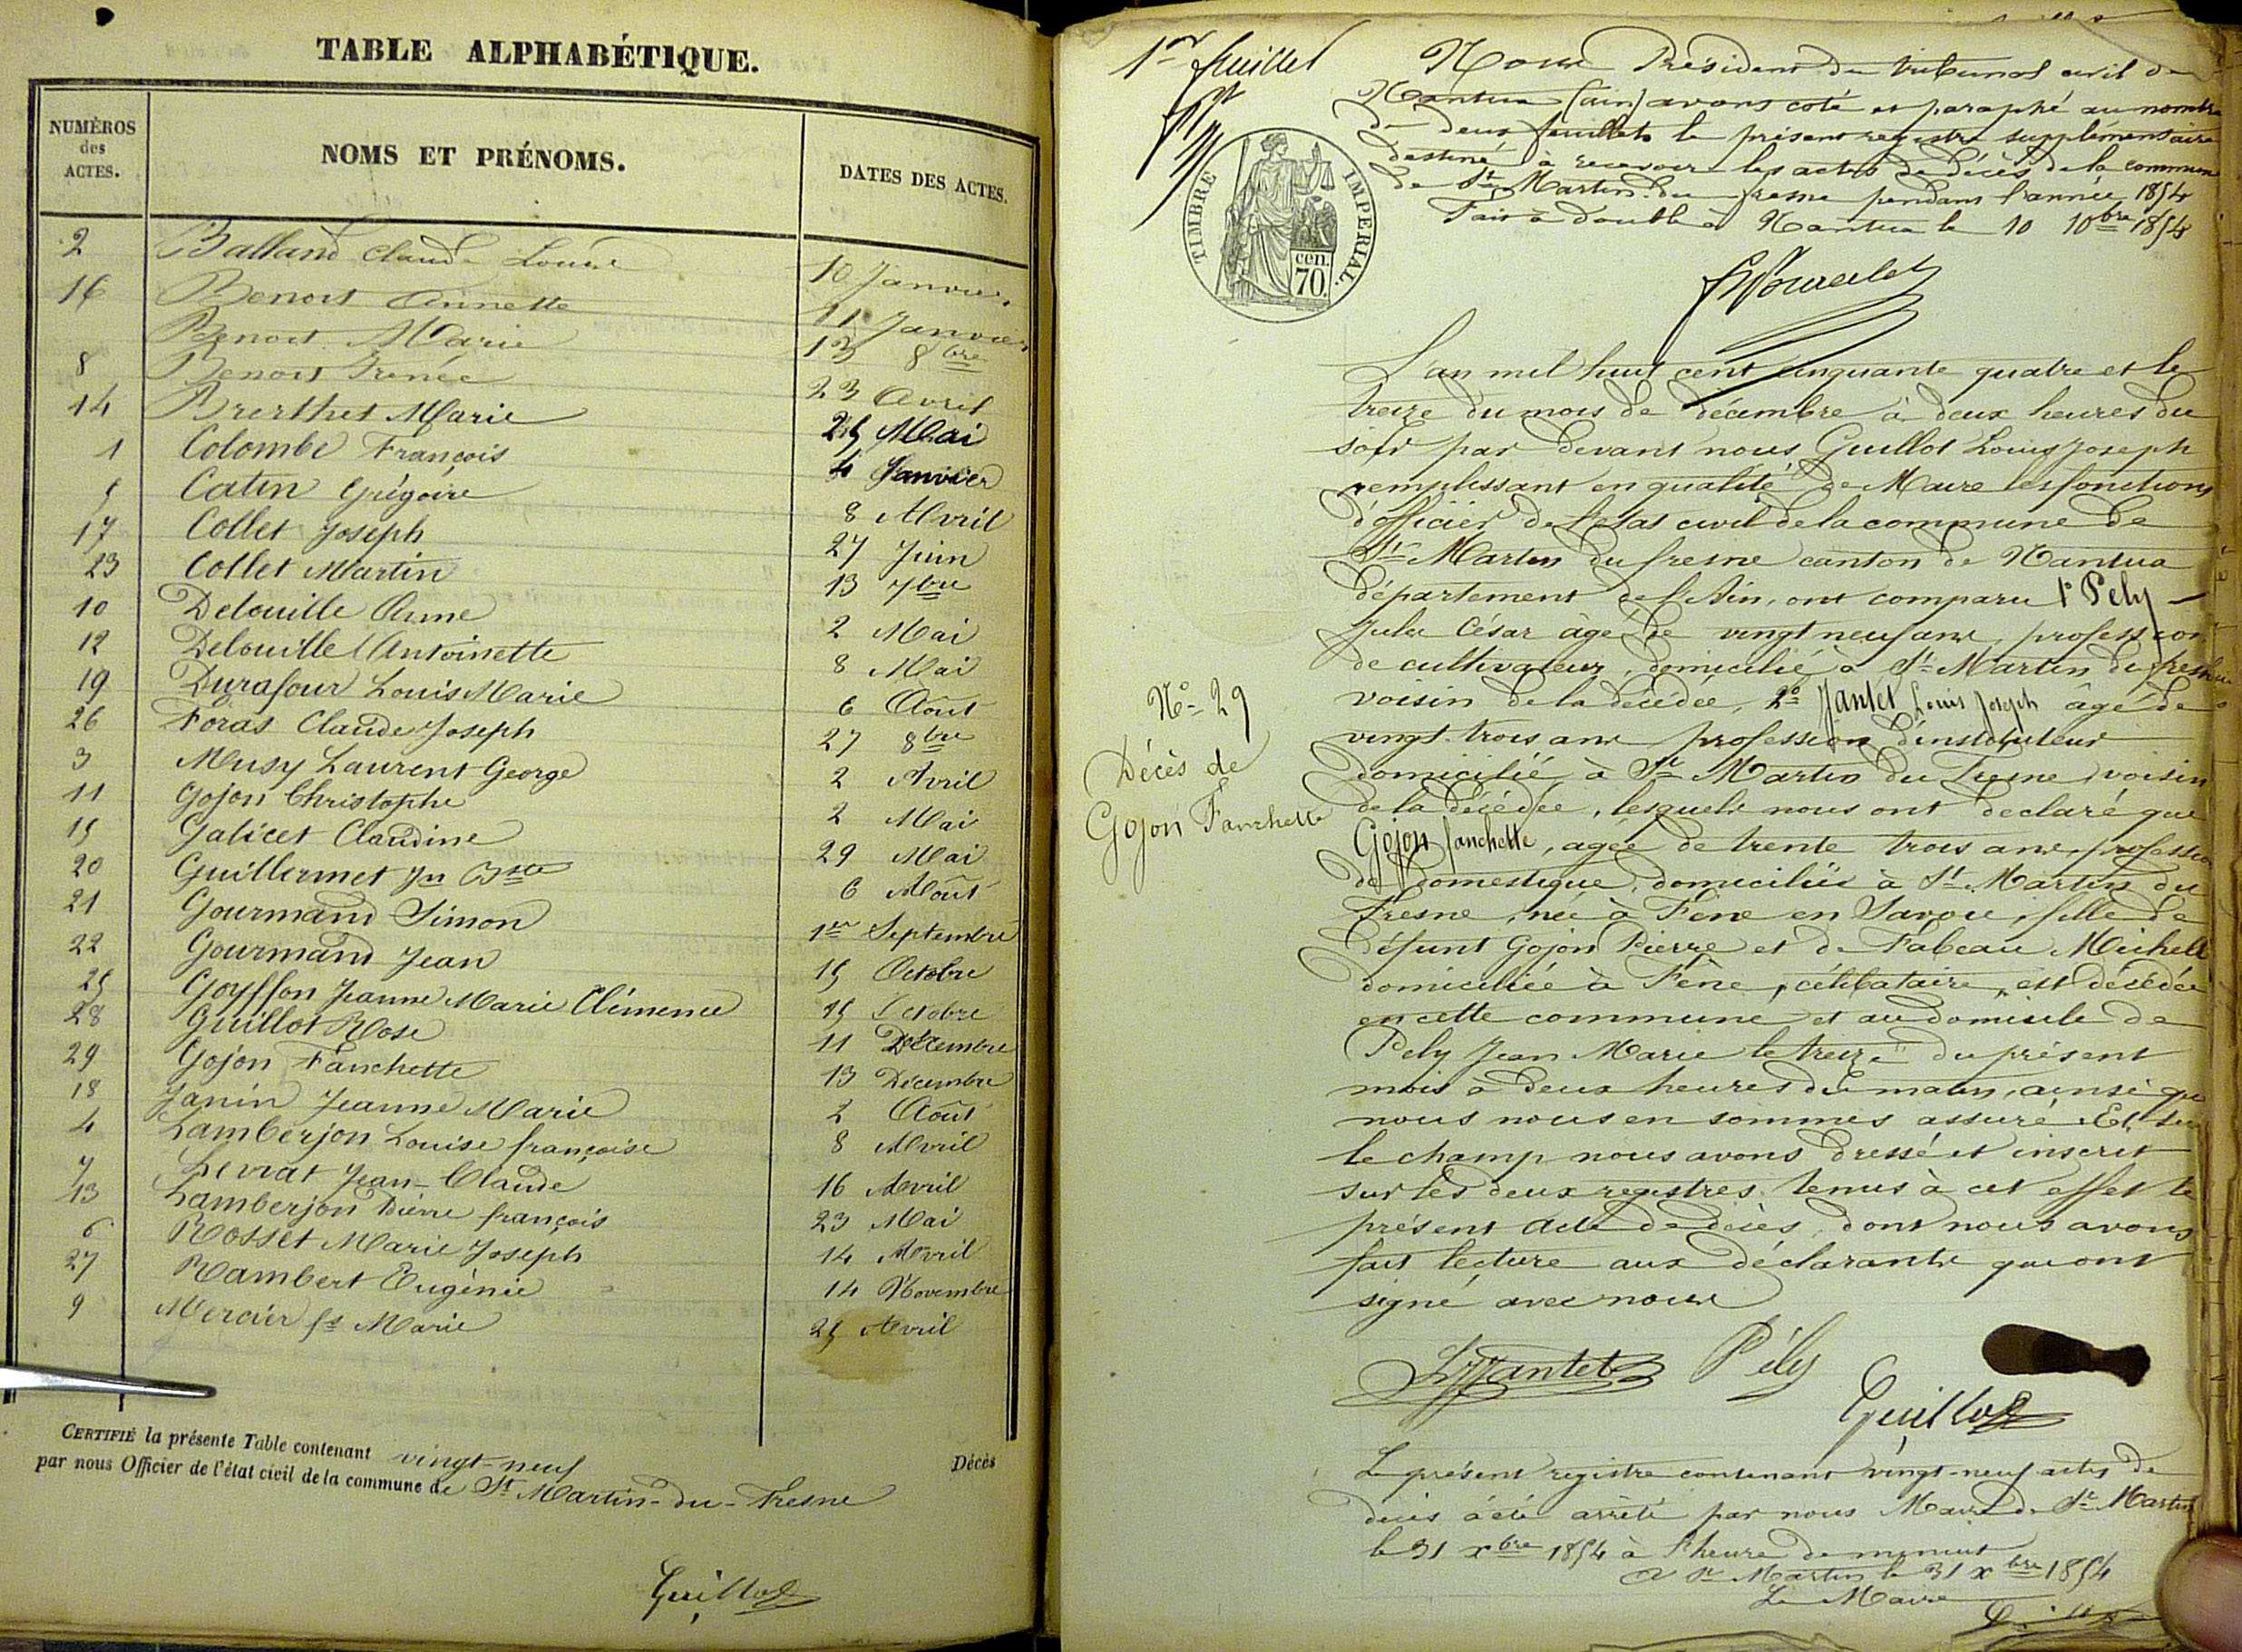 TABLE ALPHABÉTIQUE.
NUMÉROS
des
ACTES.
NOMS ET PRÉNOMS.
DATES DES ACTES.
2 Balland Claude Louise 10 Janvier
16 Benoit Annette 11 Janvier
Benoit Marie 13 8bre
8 Benoit Irenée 23 Avril
14 Brerthet Marie 25 Mai
1 Colombe François 4 Janvier
5 Catin Grégoire 8 Avril
17 Collet Joseph 27 Juin
23 Collet Martin 13 7bre
10 Delouille Anne 2 Mai
12 Delouille Antoinette 8 Mai
19 Durafour Louis Marie 6 Août
26 Foras Claude Joseph 27 8bre
3 Musy Laurent George 2 Avril
11 Gojon Christophe 2 Mai
15 Galicet Claudine 29 Mai
20 Guillermet Jn Bste 6 Août
21 Gourmand Simon 1er Septembre
22 Gourmand Jean 15 Octobre
25 Goyffon Jeanne Marie Clémence 25 Octobre
28 Guillot Rose 11 Décembre
29 Gojon Fanchette 13 Décembre
18 Janin Jeanne Marie 2 Août
4 Lamberjon Louise françoise 8 Avril
7 Levrat Jean-Claude 16 Avril
13 Lamberjon Pierre françois 23 Mai
6 Rosset Marie Joseph 14 Avril
27 Rambert Eugénie 14 Novembre
9 Mercier fs Marie 25 Avril
CERTIFIÉ la présente Table contenant vingt-neuf Décès
par nous Officier de l'état civil de la commune de St Martin-du-Fresne
Guillot
1er feuillet
Nous Président du tribunal civil de
Nantua (ain) avons coté et paraphé au nombre
de deux feuillets le présent registre supplémentaire
destiné à recevoir les actes de décès de la commune
de St Martin du fresne pendant l'année 1854
Fait à double à Nantua le 10 10bre 1854
TIMBRE IMPERIAL.
cen.
70.
L'an mil huit cent cinquante quatre et le
treize du mois de décembre à deux heures du
soir par devant nous Guillot Louis Joseph
remplissant en qualité de Maire les fonctions
d'officier de l'etat civil de la commune de
St Martin du fresne canton de Nantua
département de l'Ain, ont comparu 1° Pely
Jules César âgé de vingt neuf ans, profession
de cultivateur, domicilié à St Martin du fresne
voisin de la décédée, 2° Jantet Louis Joseph âgé de
vingt-trois ans profession d'instituteur
domicilié à St Martin du Fresne, voisin
de la décédée, lesquels nous ont declaré que
N° 29
Décès de
Gojon Fanchette
Gojon fanchette, agée de trente trois ans, profession
de domestique, domiciliée à St Martin du
Fresne, née à Fène en Savoie, fille de
défunt Gojon Pierre et de Fabeau Michelle
domiciliée à Fène, célibataire, est décédée
en cette commune et au domicile de
Pely Jean Marie le treize du présent
mois à deux heures du matin, ainsi que
nous nous en sommes assuré. Et sur
le champ nous avons dressé et inscrit
sur les deux registres tenus à cet effet le
présent acte de décès, dont nous avons
fait lecture aux déclarants qui ont
signé avec nous
LJJantet Pély
Guillot
Le présent registre contenant vingt-neuf actes de
décès a été arrêté par nous Maire de St Martin
le 31 xbre 1854 à l'heure de minuit
à St Martin le 31 xbre 1854
Le Maire